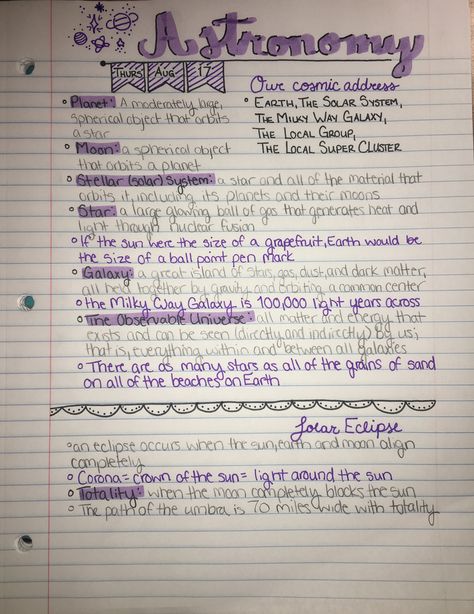 Astronomy
THURS AUG 17
Our cosmic address
◦ EARTH, THE SOLAR SYSTEM,
THE MILKY WAY GALAXY,
THE LOCAL GROUP,
THE LOCAL SUPER CLUSTER
◦ Planet: A moderately large,
spherical object that orbits
a star
◦ Moon: a spherical object
that orbits a planet
◦ Stellar (solar) System: a star and all of the material that
orbits it, including its planets and their moons
◦ Star: a large glowing ball of gas that generates heat and
light through nuclear fusion
◦ If the sun were the size of a grapefruit, Earth would be
the size of a ball point pen mark
◦ Galaxy: a great island of stars, gas, dust, and dark matter,
all held together by gravity and orbiting a common center
◦ the Milky Way Galaxy is 100,000 light years across
◦ The Observable Universe: all matter and energy that
exists and can be seen (directly and indirectly) by us;
that is, everything within and between all galaxies
◦ There are as many stars as all of the grains of sand
on all of the beaches on Earth
Solar Eclipse
◦ an eclipse occurs when the sun, earth and moon align
completely
◦ Corona = crown of the sun = light around the sun
◦ Totality: when the moon completely blocks the sun
◦ The path of the umbra is 70 miles wide with totality